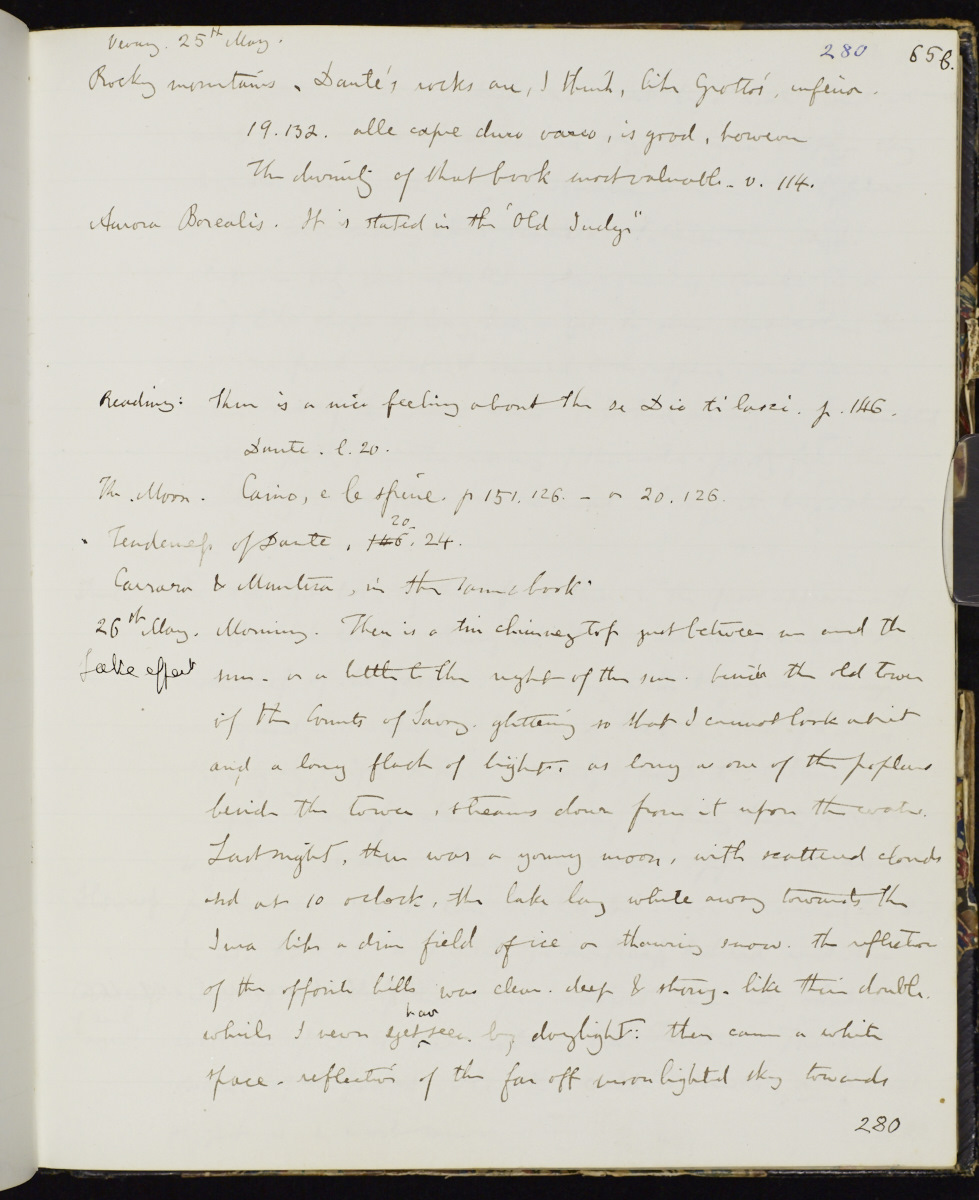 Vevay. 25th May.
280 656.
Rocky mountains. Dante's rocks are, I think, like Giotto's, inferior.
19.132. alle capre duro varco, is good, however
The divinity of that book most valuable - v. 114.
Aurora Borealis. It is stated in the "Old Judge"
Reading: there is a nice feeling about the se Dio ti lasci. p. 146.
Dante. l. 20.
The Moon. Caino, e le spine. p 151. 126. - or 20. 126.
Tenderness of Dante, 146. 20. 24.
Carrara & Mantua, in the same book.
26th May. Morning. There is a tin chimney top just between me and the
Lake effect sun - or a little to the right of the sun. beside the old tower
of the Counts of Savoy. glittering so that I cannot look at it
and a long flash of light, as long as one of the poplars
beside the tower, streams down from it upon the water.
Last night, there was a young moon, with scattered clouds
and at 10 oclock, the lake lay white away towards the
Jura like a dim field of ice or thawing snow. the reflection
of the opposite hills was clear. deep & strong - like their double.
which I never have yet seen by daylight: then came a white
space - reflection of the far off moonlighted sky towards
280